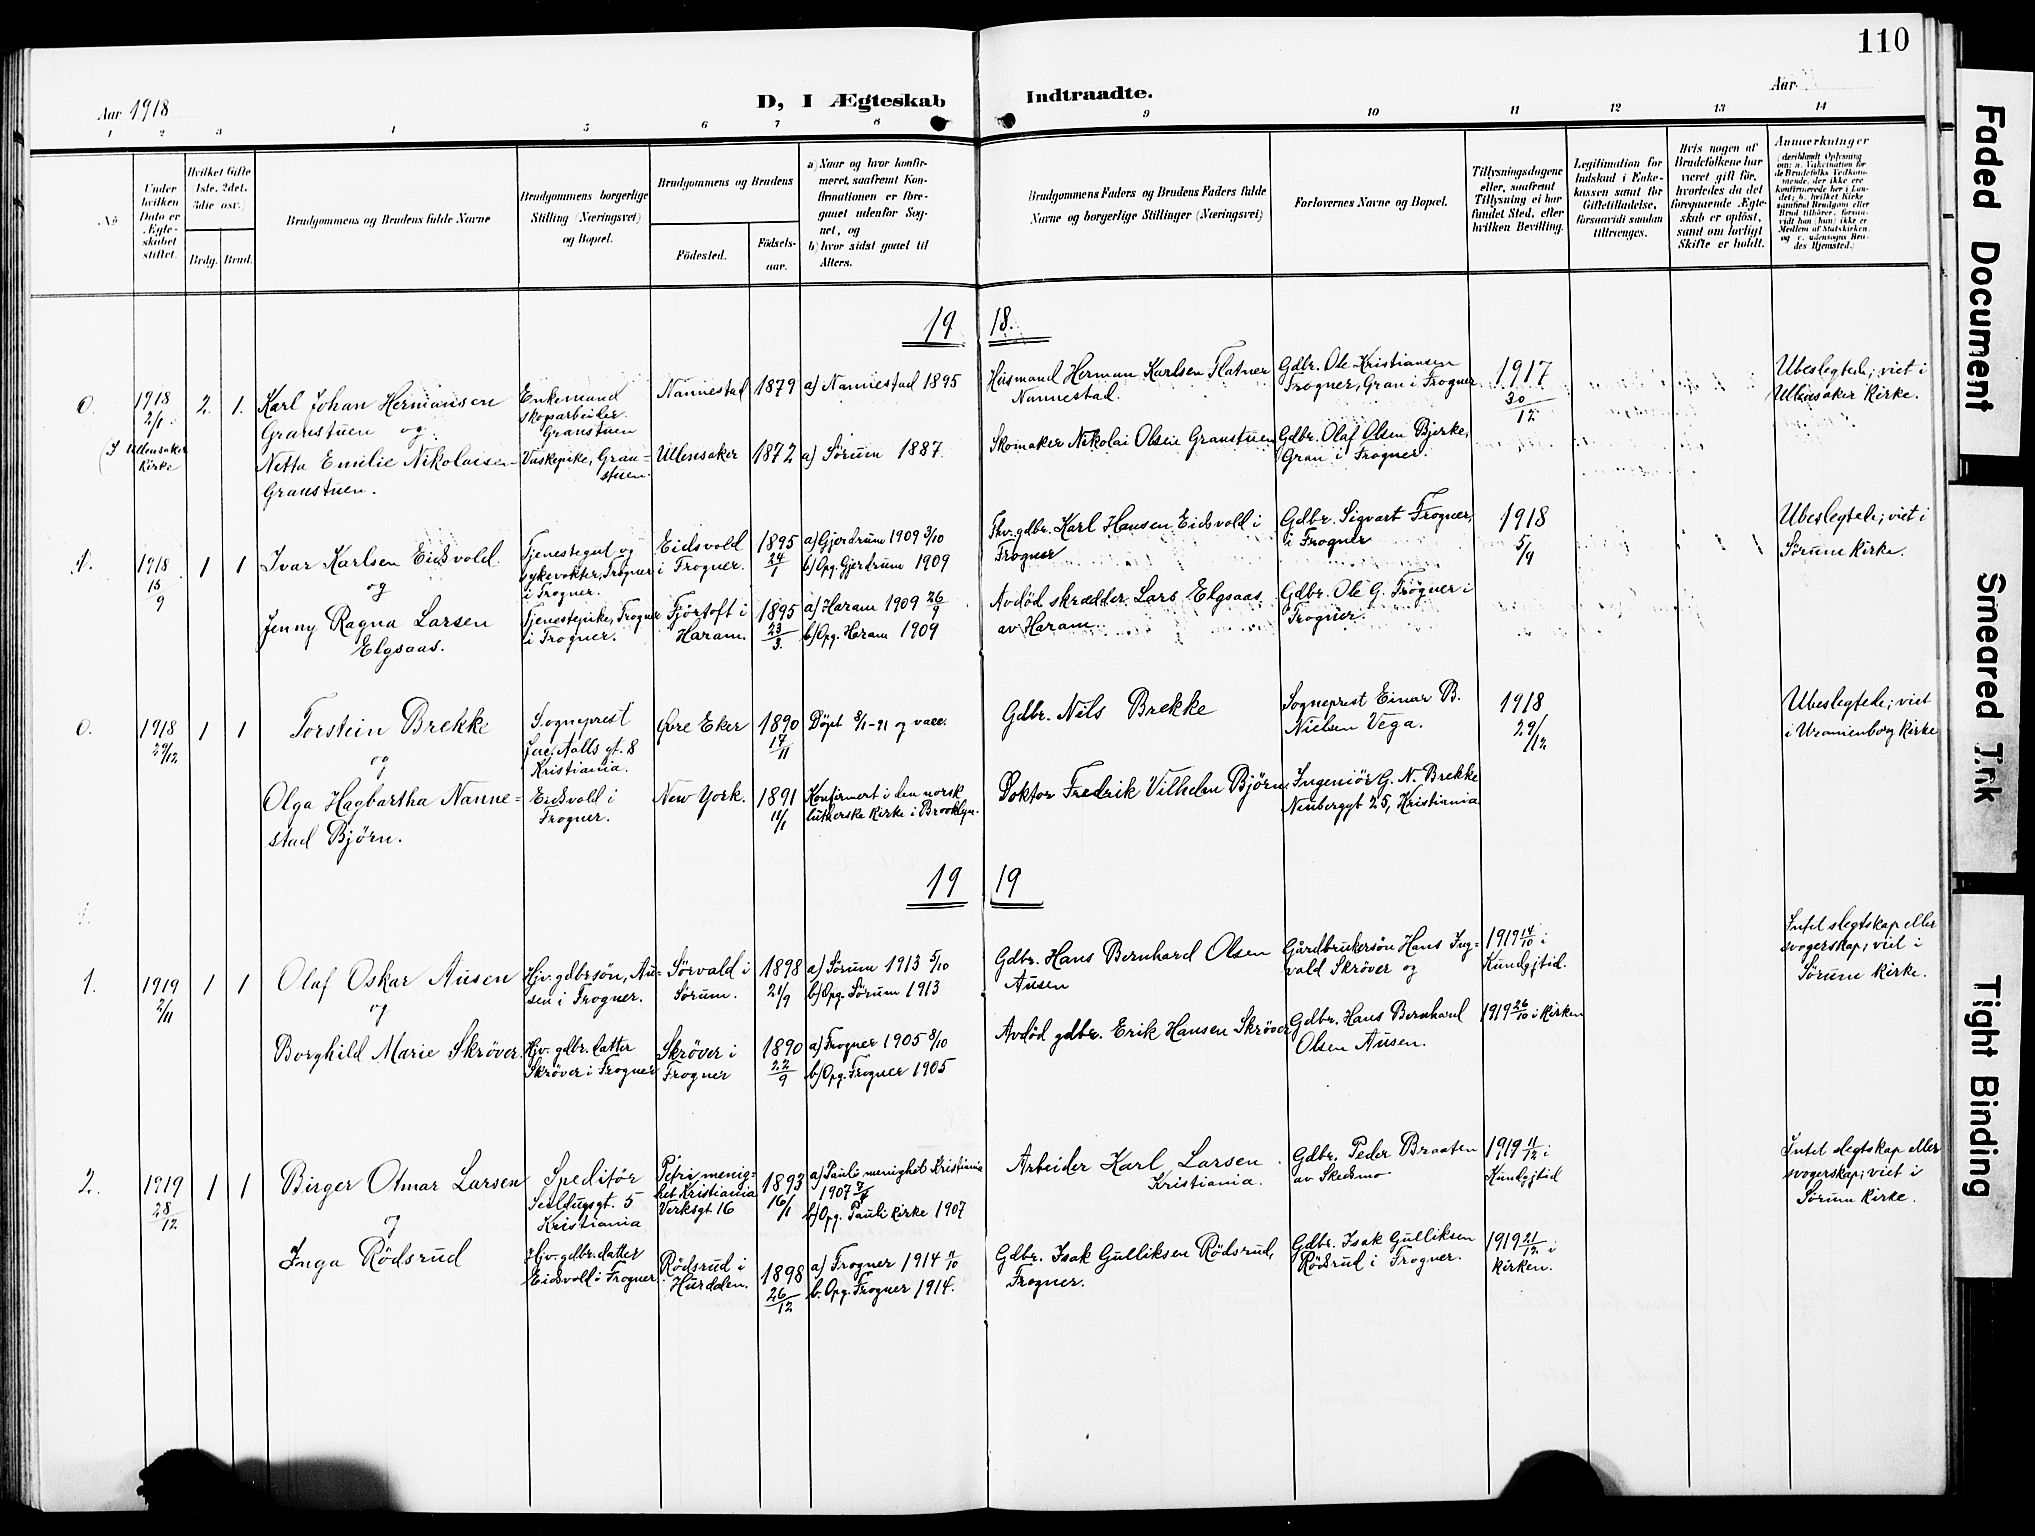 110
Aar 1918
D, I Ægteskab Indtraadte.
Aar
1 2 3 4 5 6 7 8 9 10 11 12 13 14
No
Under hvilken Dato er Ægteskabet stiftet.
Hvilket Gifte 1ste, 2det, 3die osv.)
Brdg. Brud.
Brudgommens og Brudens fulde Navne
Brudgommens borgerlige Stilling (Næringsvei) og Bopæl.
Brudgommens og Brudens
Fødested.
Fødsels-aar.
a) Naar og hvor konfirmeret, saafremt Konfirmationen er foregaaet udenfor Sognet, og
b) hvor sidst gaaet til Alters.
Brudgommens Faders og Brudens Faders fulde Navne og borgerlige Stillinger (Næringsvei)
Forlovernes Navne og Bopæl.
Tillysningsdagene eller, saafremt Tillysning ei har fundet Sted, efter hvilken Bevilling.
Legitimation for Indskud i Enkekassen samt for Giftetilladelse, forsaavidt saadan tiltrænges.
Hvis nogen af Brudefolkene har været gift før, hvorledes da det foregaaende Ægteskab er opløst, samt om lovligt Skifte er holdt.
Anmærkninger (deriblandt Oplysning om: a. Vakcination for de Brudefolks Vedkommende, der ikke ere konfirmerede her i Landet; b. hvilket Kirkesamfund Brudgom eller Brud tilhører, forsaavidt han (hun) ikke er Medlem af Statskirken og c. udensogns Brudes Hjemsted.)
19 18.
0. 1918 2/1. (I Ullensaker Kirke 2. 1. Karl Johan Hermansen Granstuen og
Enkemand skoparbeider. Granstuen
Nannestad 1879 a) Nannestad 1895
Husmand Herman Karlsen Flatner Nannestad.
Gdbr. Ole Kristiansen Frogner, Gran i Frogner
1917 30/12
Ubeslegtede; viet i Ullensaker Kirke.
Netta Emilie Nikolaisen Granstuen.
Vaskepike, Granstuen.
Ullensaker 1872 a) Sørum 1887.
Skomaker Nikolai Olsen Granstuen
Gdbr. Olaf Olsen Bjerke, Gran i Frogner.
1. 1918 15/9 1 1 Ivar Karlsen Eidsvold og
Tjenestegut og sykevokter, Frogner i Frogner.
Eidsvold i Frogner. 1895 24/1
a) Gjerdrum 1909 3/10
b) Opg. Gjerdrum 1909
Fhv. gdbr. Karl Hansen Eidsvold i Frogner
Gdbr. Sigvart Frogner, i Frogner
1918 5/9
Ubeslegtede; viet i Sørum Kirke.
Jenny Ragna Larsen Elgsaas.
Tjenestepike, Frogner i Frogner.
Fjörtoft i Haram. 1895 23/3.
a) Haram 1909 26/9
b) Opg. Haram 1909
Avdöd skrædder Lars Elgsaas av Haram.
Gdbr. Ole G. Frogner i Frogner.
0. 1918 29/12 1 1 Torstein Brekke og
Sogneprest Jac. Aalls gt. 8 Kristiania.
Øvre Eker 1890 17/11
Døpt 8/1-91 og vacc.
Gdbr. Nils Brekke
Sogneprest Einar B. Nielsen Vega.
1918 29/12
Ubeslegtede; viet i Uranienborg Kirke
Olga Hagbartha Nannestad Björn.
Eidsvold i Frogner.
New York. 1891 11/1
Konfirmert i den norsk lutherske Kirke i Brooklyn.
Doktor Fredrik Vilhelm Björn,
Ingeniör G. N. Brekke Neuberggt 25, Kristiania
19 19
1. 1919 2/11 1 1 Olaf Oskar Ausen og
Hjv. gdbrsön, Ausen i Frogner.
Sørvald i Sørum. 1898 21/9
a) Sørum 1913 5/10
b) Opg. Sørum 1913
Gdbr. Hans Bernhard Olsen Ausen
Gårdbrukersön Hans Ingvald Skröver og
1919 14/10 i Kundgjtid.
Intet slegtskap eller svogerskap; viet i Sørum Kirke.
Borghild Marie Skröver
Hjv. gdbr. datter Skröver i Frogner
Skröver i Frogner 1890 22/9
a) Frogner 1905 8/10
b) Opg. Frogner 1905
Avdöd gdbr. Erik Hansen Skröver
Gdbr. Hans Bernhard Olsen Ausen.
1919 26/10 i Kirken
2. 1919 28/12 1 1 Birger Otmar Larsen og
Speditör Seildugsgt. 5 Kristiania
Petri menighet Kristiania Verksgt 16 1893 16/1
a) Pauli menighet Kristiania 1907
b) Opg. Pauli Kirke 1907
Arbeider Karl Larsen Kristiania.
Gdbr. Peder Braaten av Skedsmo
1919 11/12 i Kundgjtid
Intet slegtskap eller svogerskap; viet i Sørum Kirke.
Inga Rödsrud
Hjv. gdbr. datter Eidsvold i Frogner
Rödsrud i Hurdalen. 1898 26/12
a) Frogner 1914 11/10
b. Opg. Frogner 1914.
Gdbr. Isak Gulliksen Rödsrud, Frogner.
Gdbr. Isak Gulliksen Rödsrud i Frogner.
1919 21/12 i Kirken.
Faded Document
Smeared Ink
Tight Binding